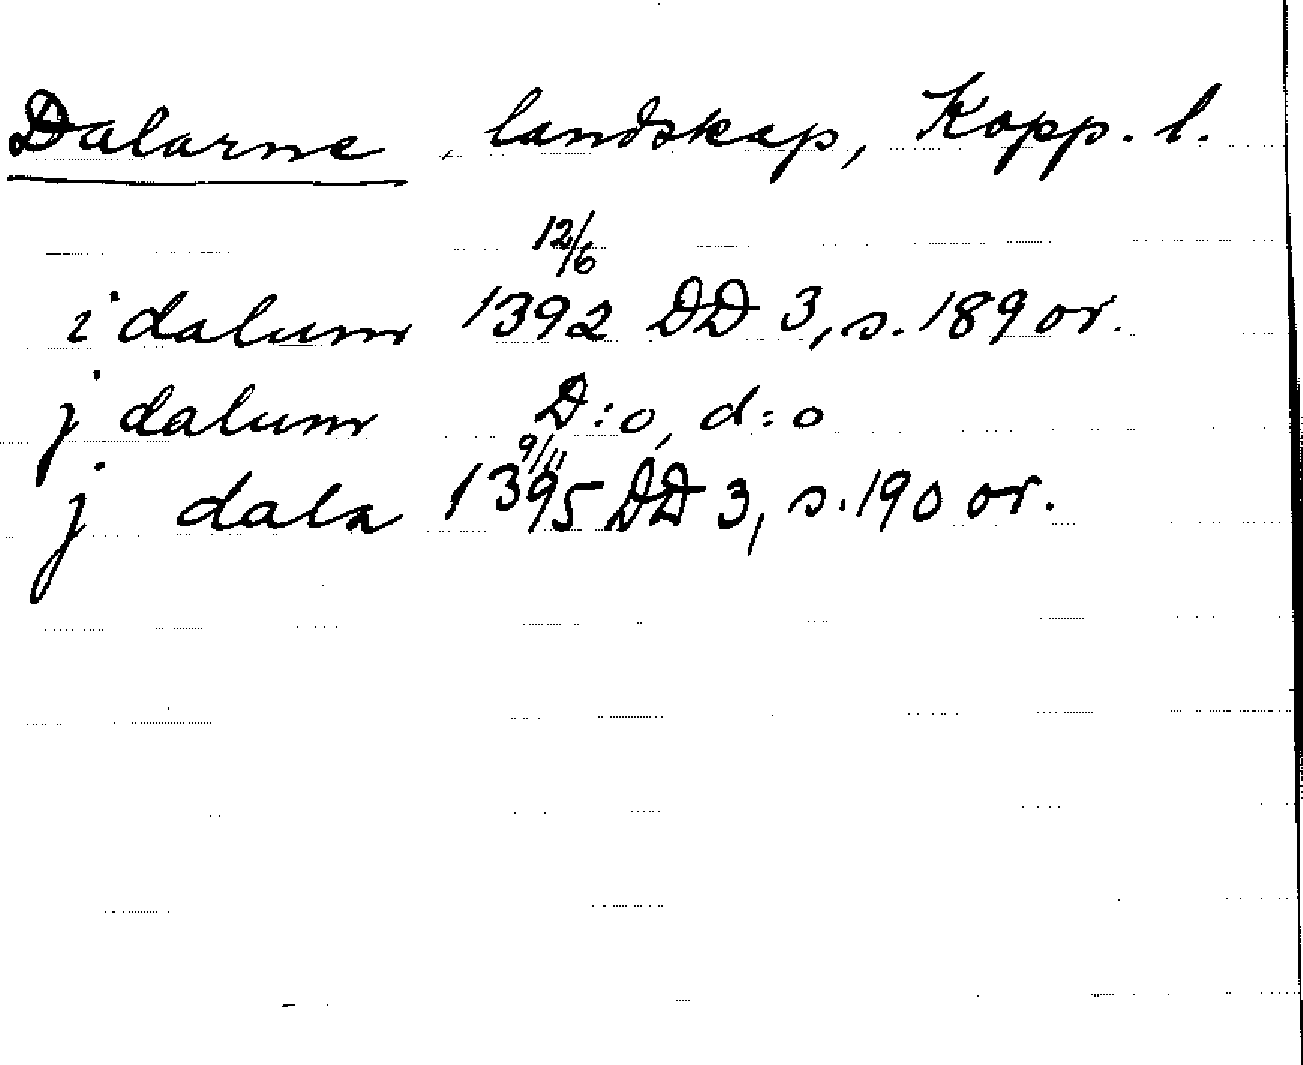 Dalarne, landskap, Kopp. l.
12/6
i dalum 1392 DD 3, s. 189 or.
j dalum D:o, d:o
9/11
j dala 1395 DD 3, s. 190 or.